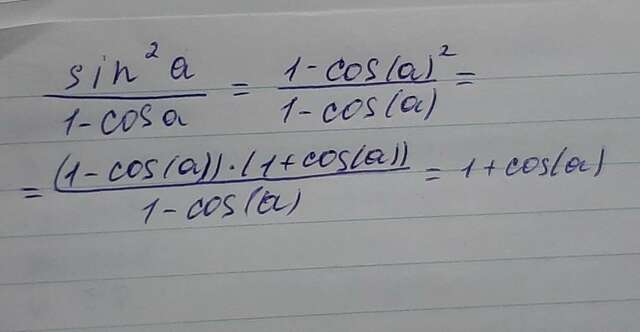 sin²a / 1-cosa = 1-cos(a)² / 1-cos(a) =
= (1-cos(a))·(1+cos(a)) / 1-cos(a) = 1+cos(a)